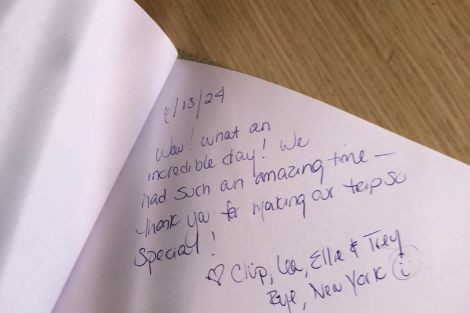 /13/24
Wow! What an
incredible day! We
had such an amazing time –
thank you for making our trip so
special!
♡ Chip, Lea, Ellie & Trey
Rye, New York ☺